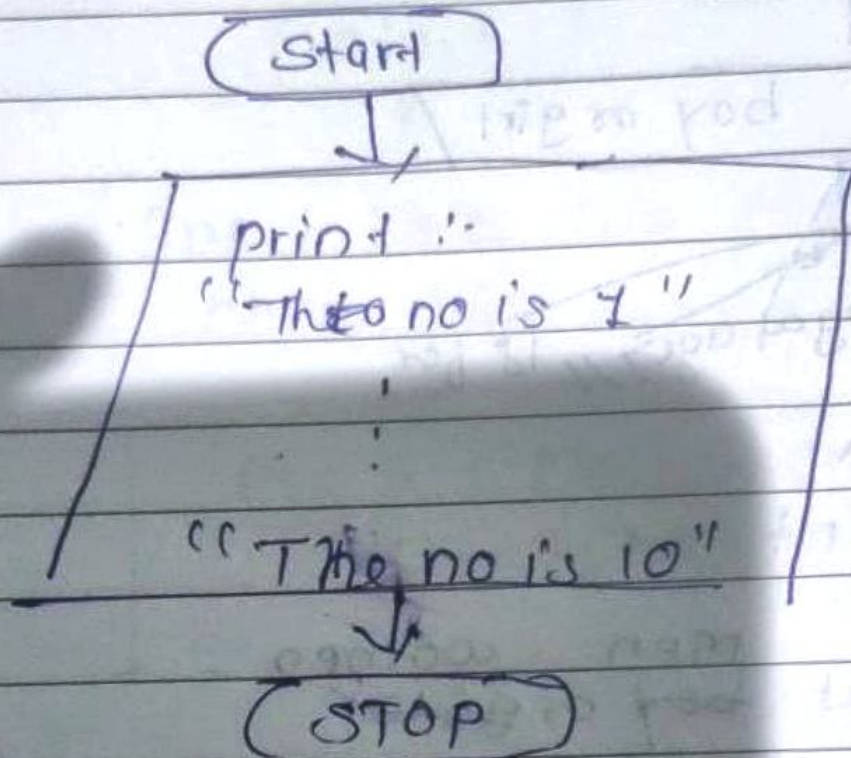 Start
print :-
"The no is 1"
"The no is 10"
STOP